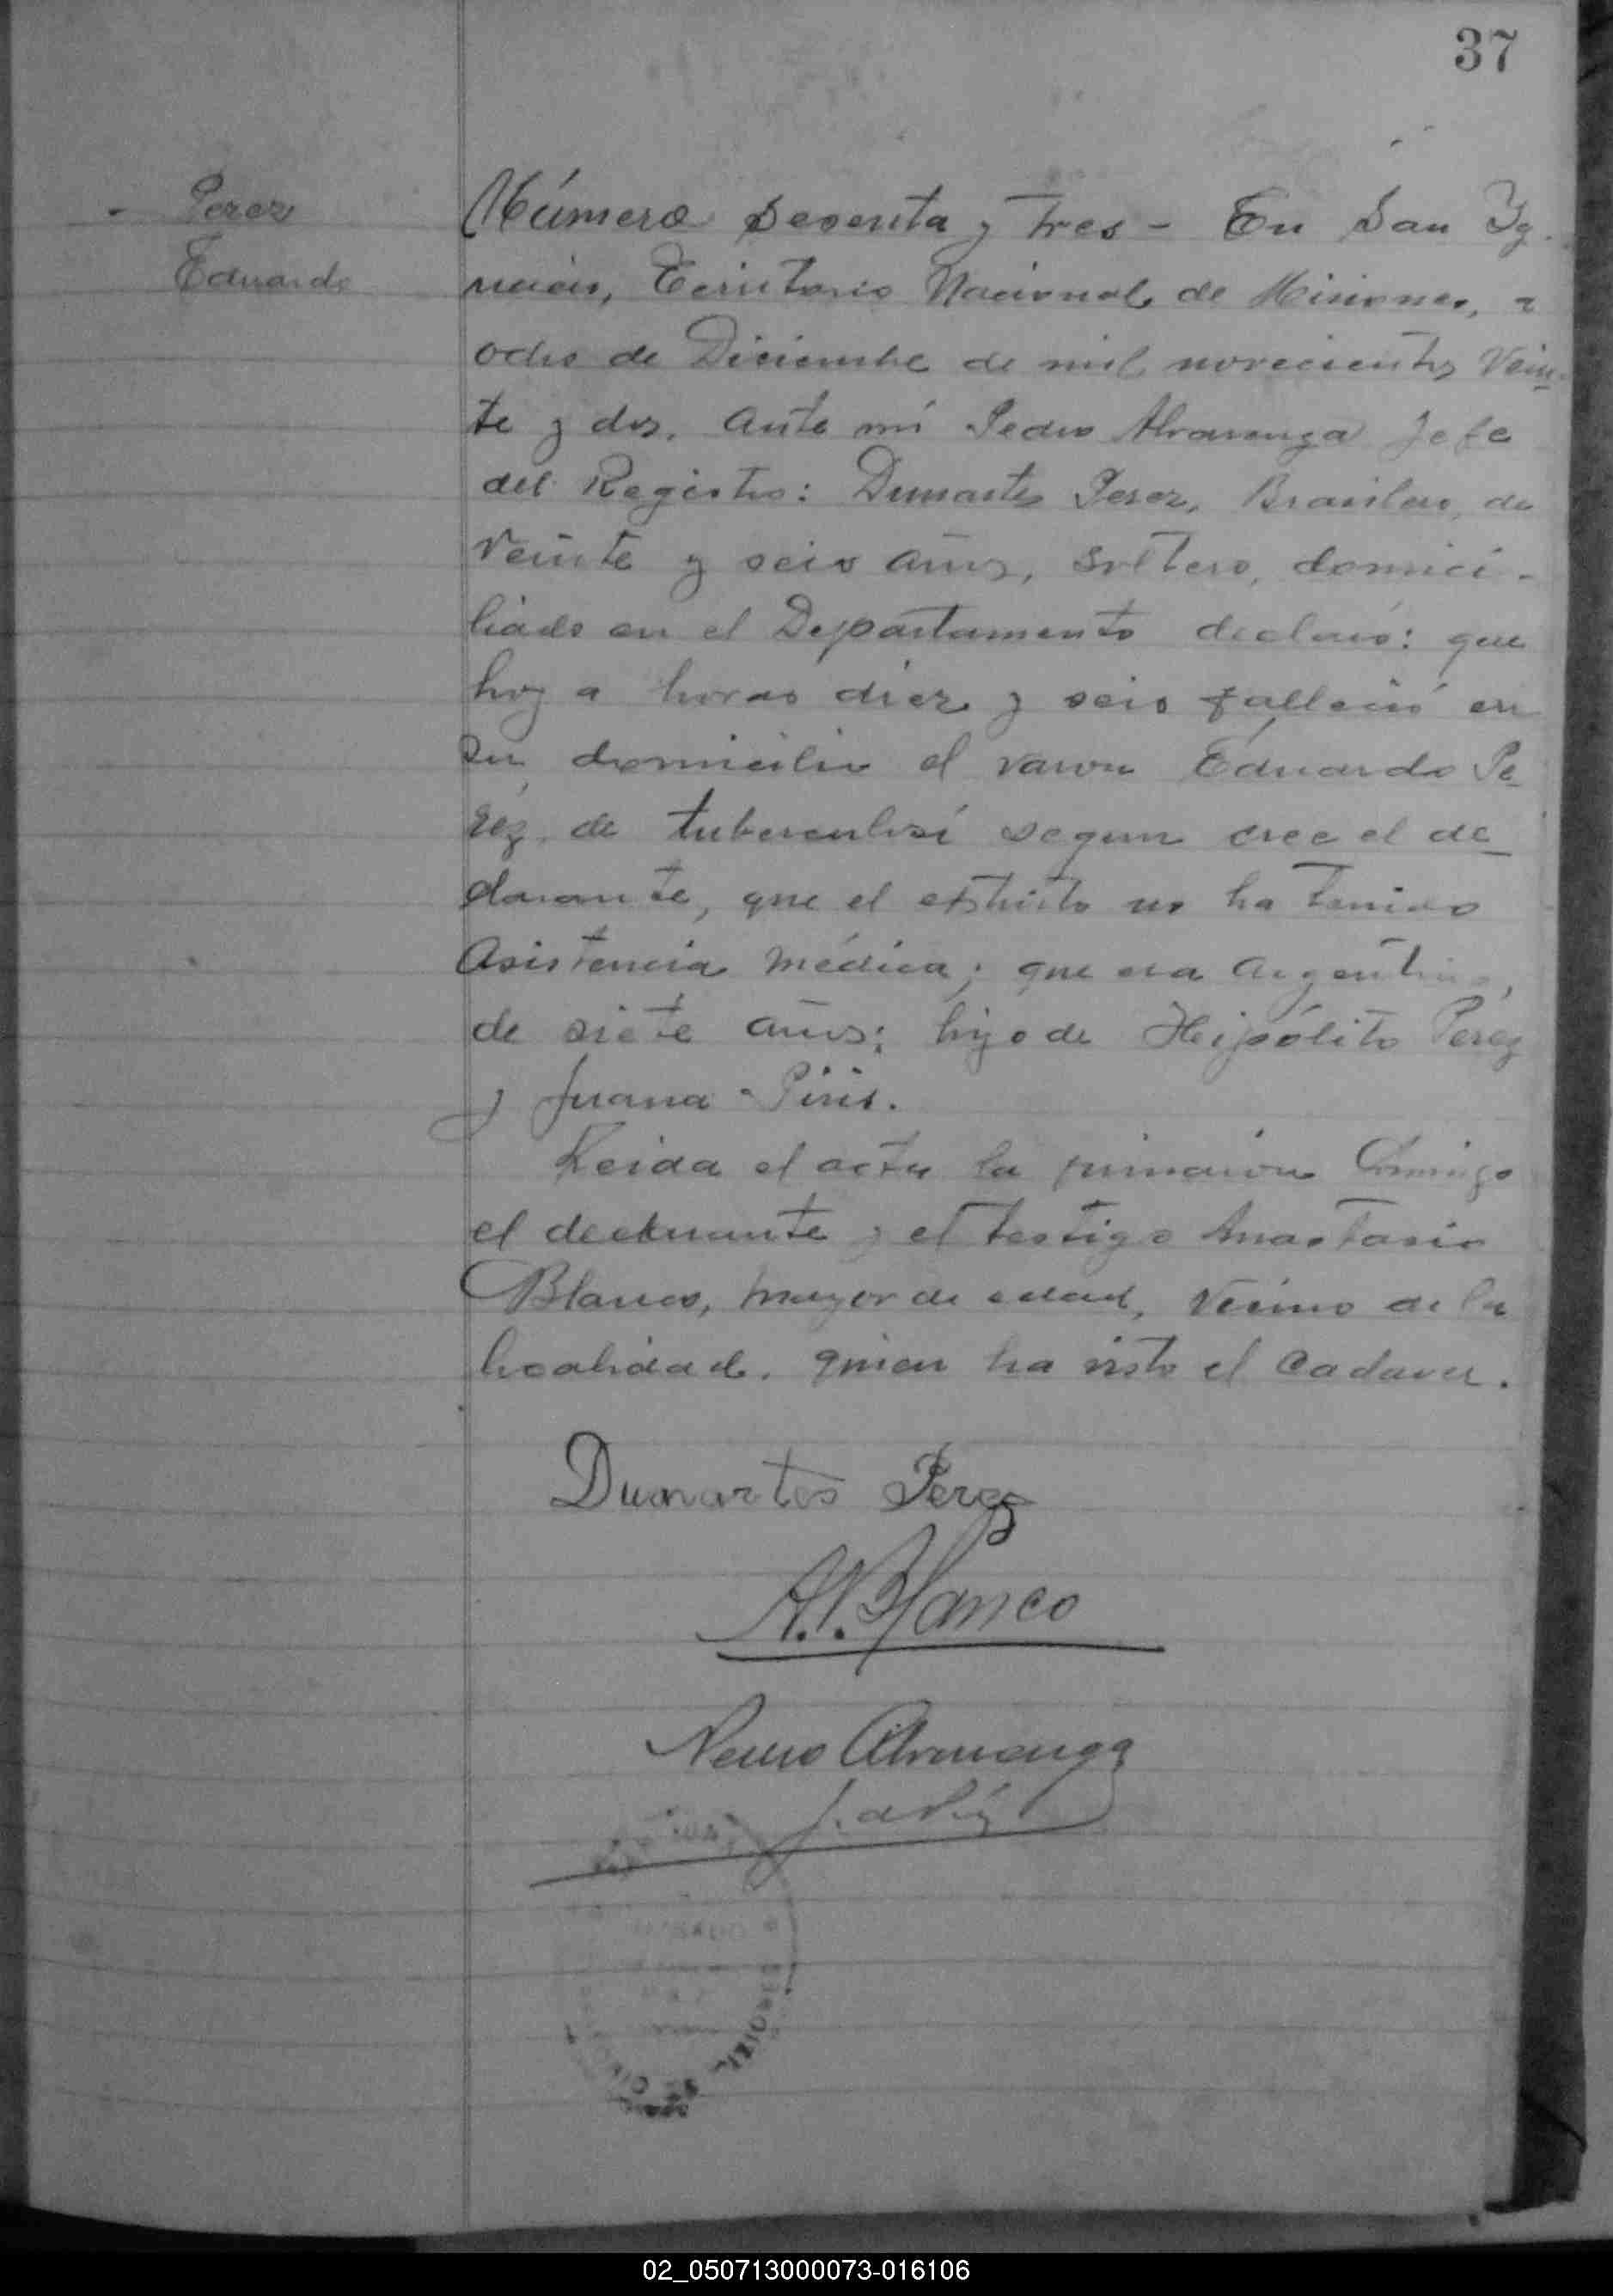 37
Perez
Eduardo
Número sesenta y tres - En San Yg-
nacio, Territorio Nacional de Misiones, a
ocho de Diciembre de mil novecientos Vein-
te y dos, ante mí Pedro Alvarenga Jefe
del Registro: Dumartes Perez, Brasilero, de
veinte y seis años, soltero, domici-
liado en el Departamento declaró: que
hoy a horas diez y seis falleció en
su domicilio el varon Eduardo Pe
réz, de tuberculosi segun cree el de
clarante, que el extinto no ha tenido
asistencia médica; que era argentino,
de siete años; hijo de Heipólito Peréz
y Juana Piris.
Leida el acta la firmaron Conmigo
el declarante y el testigo Anastasio
Blanco, mayor de edad, vecino de la
localidad, quien ha visto el cadaver.
Dumartes Perez
A. Blanco
Pedro Alvarenga
02_050713000073-016106